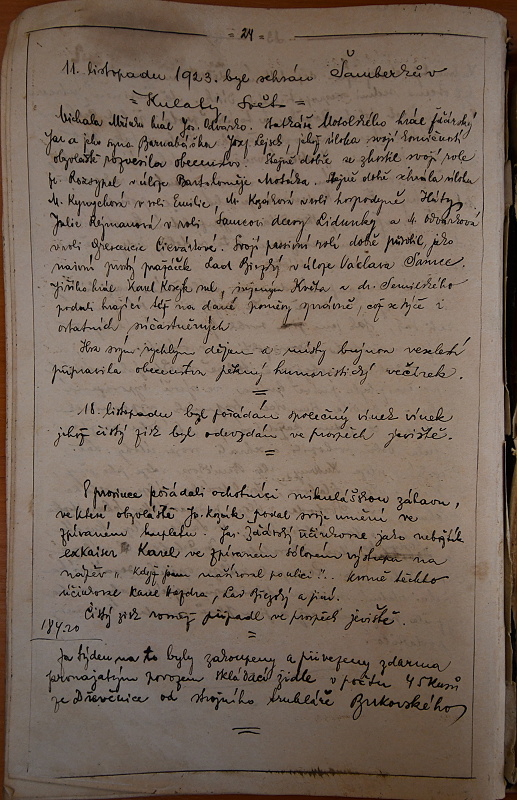 = 24 =
11. listopadu 1923. byl sehrán Šamberkův
= Kulatý Svět =
Michala hrál Jos. Statkáře Motolského hrál
Jar a jeho syna Barnabáška Josef Lejsek, jehož úloha svojí komičností
obzvláště rozveselila obecenstvo. Stejně dobře se zhostil svojí role
fr. Rozsypal v úloze Bartoloměje Mošáka. Stejně dobře sehrála úlohu
M. v roli Emilie, M. Kozáková v roli hospodyně Háty,
Julie Rejmanová v roli Šancovi dcery Lidunky a M.
v roli Svoji passivní roli dobře působil, jako
naivní prostý pražáček Lad Biezký v úloze Václava Šance.
Jiřího hrál Karel Kozák ml, inženýra Květa a dr. Semilského
podali hrající též na dané poměry správně, což se týče i
ostatních súčastněných
Hra svým rychlým dějem a místy bujnou veselostí
připravila obecenstvu pěkný humoristický večírek.
=
18. listopadu byl pořádán společný vínek vínek
jehož čistý zisk byl odevzdán ve prospěch jeviště.
=
V prosince pořádali ochotníci mikulášskou zábavu,
ve které obzvláště Jos. Kozák podal svoje umění ve
zpívaném kupletu. Jar. Žďárský účinkoval jako nebožtík
exkaiser Karel ve zpívaném sólovém výstupu na
nápěv „Když jsem mašíroval po ulici". Kromě těchto
účinkoval Karel Hejdra, Lad Biezký a jiní.
Čistý zisk rovněž připadl ve prospěch jeviště.
184.20
=
Za týden na to byly zakoupeny a přivezeny zdarma
pronajatým povozem skládací židle v počtu 45 kusů
ze Dřevěnice od strojního truhláře Bukovského
=